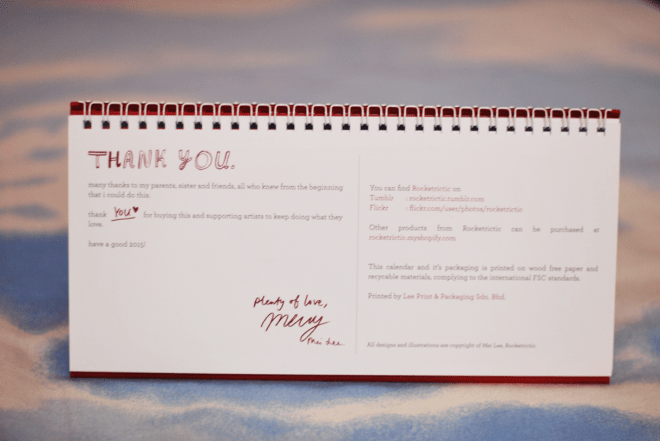 THANK YOU.
many thanks to my parents, sister and friends, all who knew from the beginning
that i could do this.
thank YOU♥ for buying this and supporting artists to keep doing what they
love.
have a good 2015!
plenty of love,
mercy
mei lee
You can find Rocketrictic on
Tumblr : rocketrictic.tumblr.com
Flickr : flickr.com/user/photos/rocketrictic
Other products from Rocketrictic can be purchased at
rocketrictic.myshopify.com
This calendar and it's packaging is printed on wood free paper and
recycable materials, complying to the international FSC standards.
Printed by Lee Print & Packaging Sdn. Bhd.
All designs and illustrations are copyright of Mei Lee, Rocketrictic